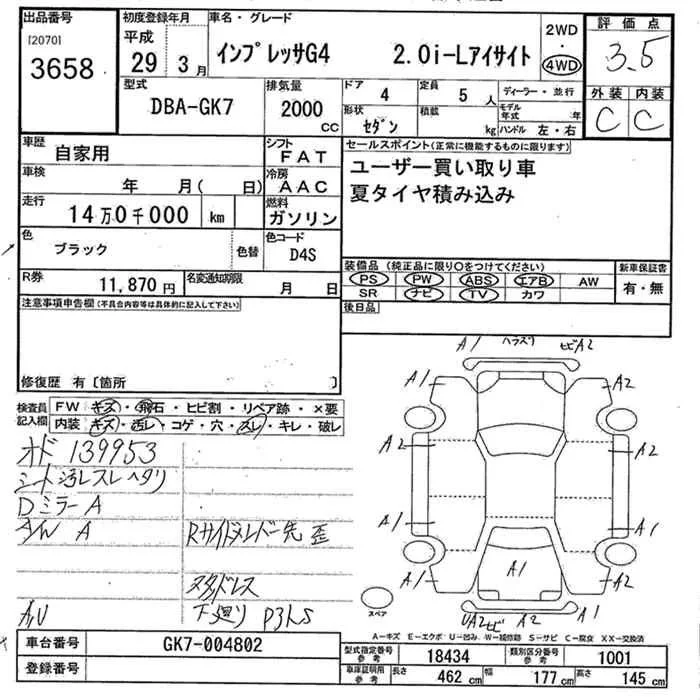 出品番号
[2070]
3658
初度登録年月
平成
29 3月
車名・グレード
インプレッサG4 2.0i-Lアイサイト
2WD
・
4WD
評価点
3.5
外装 内装
C C
型式
DBA-GK7
排気量
2000
cc
ドア 4
定員 5 人
ディーラー・並行
形状
セダン
積載
kg
モデル年式 年
ハンドル 左・右
車歴
自家用
シフト
FAT
車検
年 月( 日)
冷房
AAC
走行
14万0千000 km
燃料
ガソリン
色
ブラック
色替
色コード
D4S
R券
11,870円
名変通知期限
月 日
セールスポイント(正常に機能するものに限ります)
ユーザー買い取り車
夏タイヤ積み込み
装備品(純正品に限り○をつけてください)
PS PW ABS エアB AW
SR ナビ TV カワ
新車保証書
有・無
後日品
注意事項申告欄(不具合内容等は具体的に記入して下さい)
修復歴 有〔箇所 〕
検査員
記入欄
FW キズ・飛石・ヒビ割・リペア跡・×要
内装 キズ・汚レ・コゲ・穴・スレ・キレ・破レ
オド 139953
シート汚レスレヘタリ
Dミラー A
A/W A
Rサイドメレバー先 歪
スタッドレス
下廻り P3LS
A1 ヘラズリ ヒビA2
A1 A2
A2 A2
A1 A1
A1
A1 A1
UA2ヒビ A2 A1
スペア
A-キズ E-エクボ U-凹み W-補修跡 S-サビ C-腐食 XX-交換済
車台番号
GK7-004802
登録番号
型式指定番号
参考
18434
類別区分番号
参考
1001
車庫証明用
参考
長さ 462 cm
幅 177 cm
高さ 145 cm